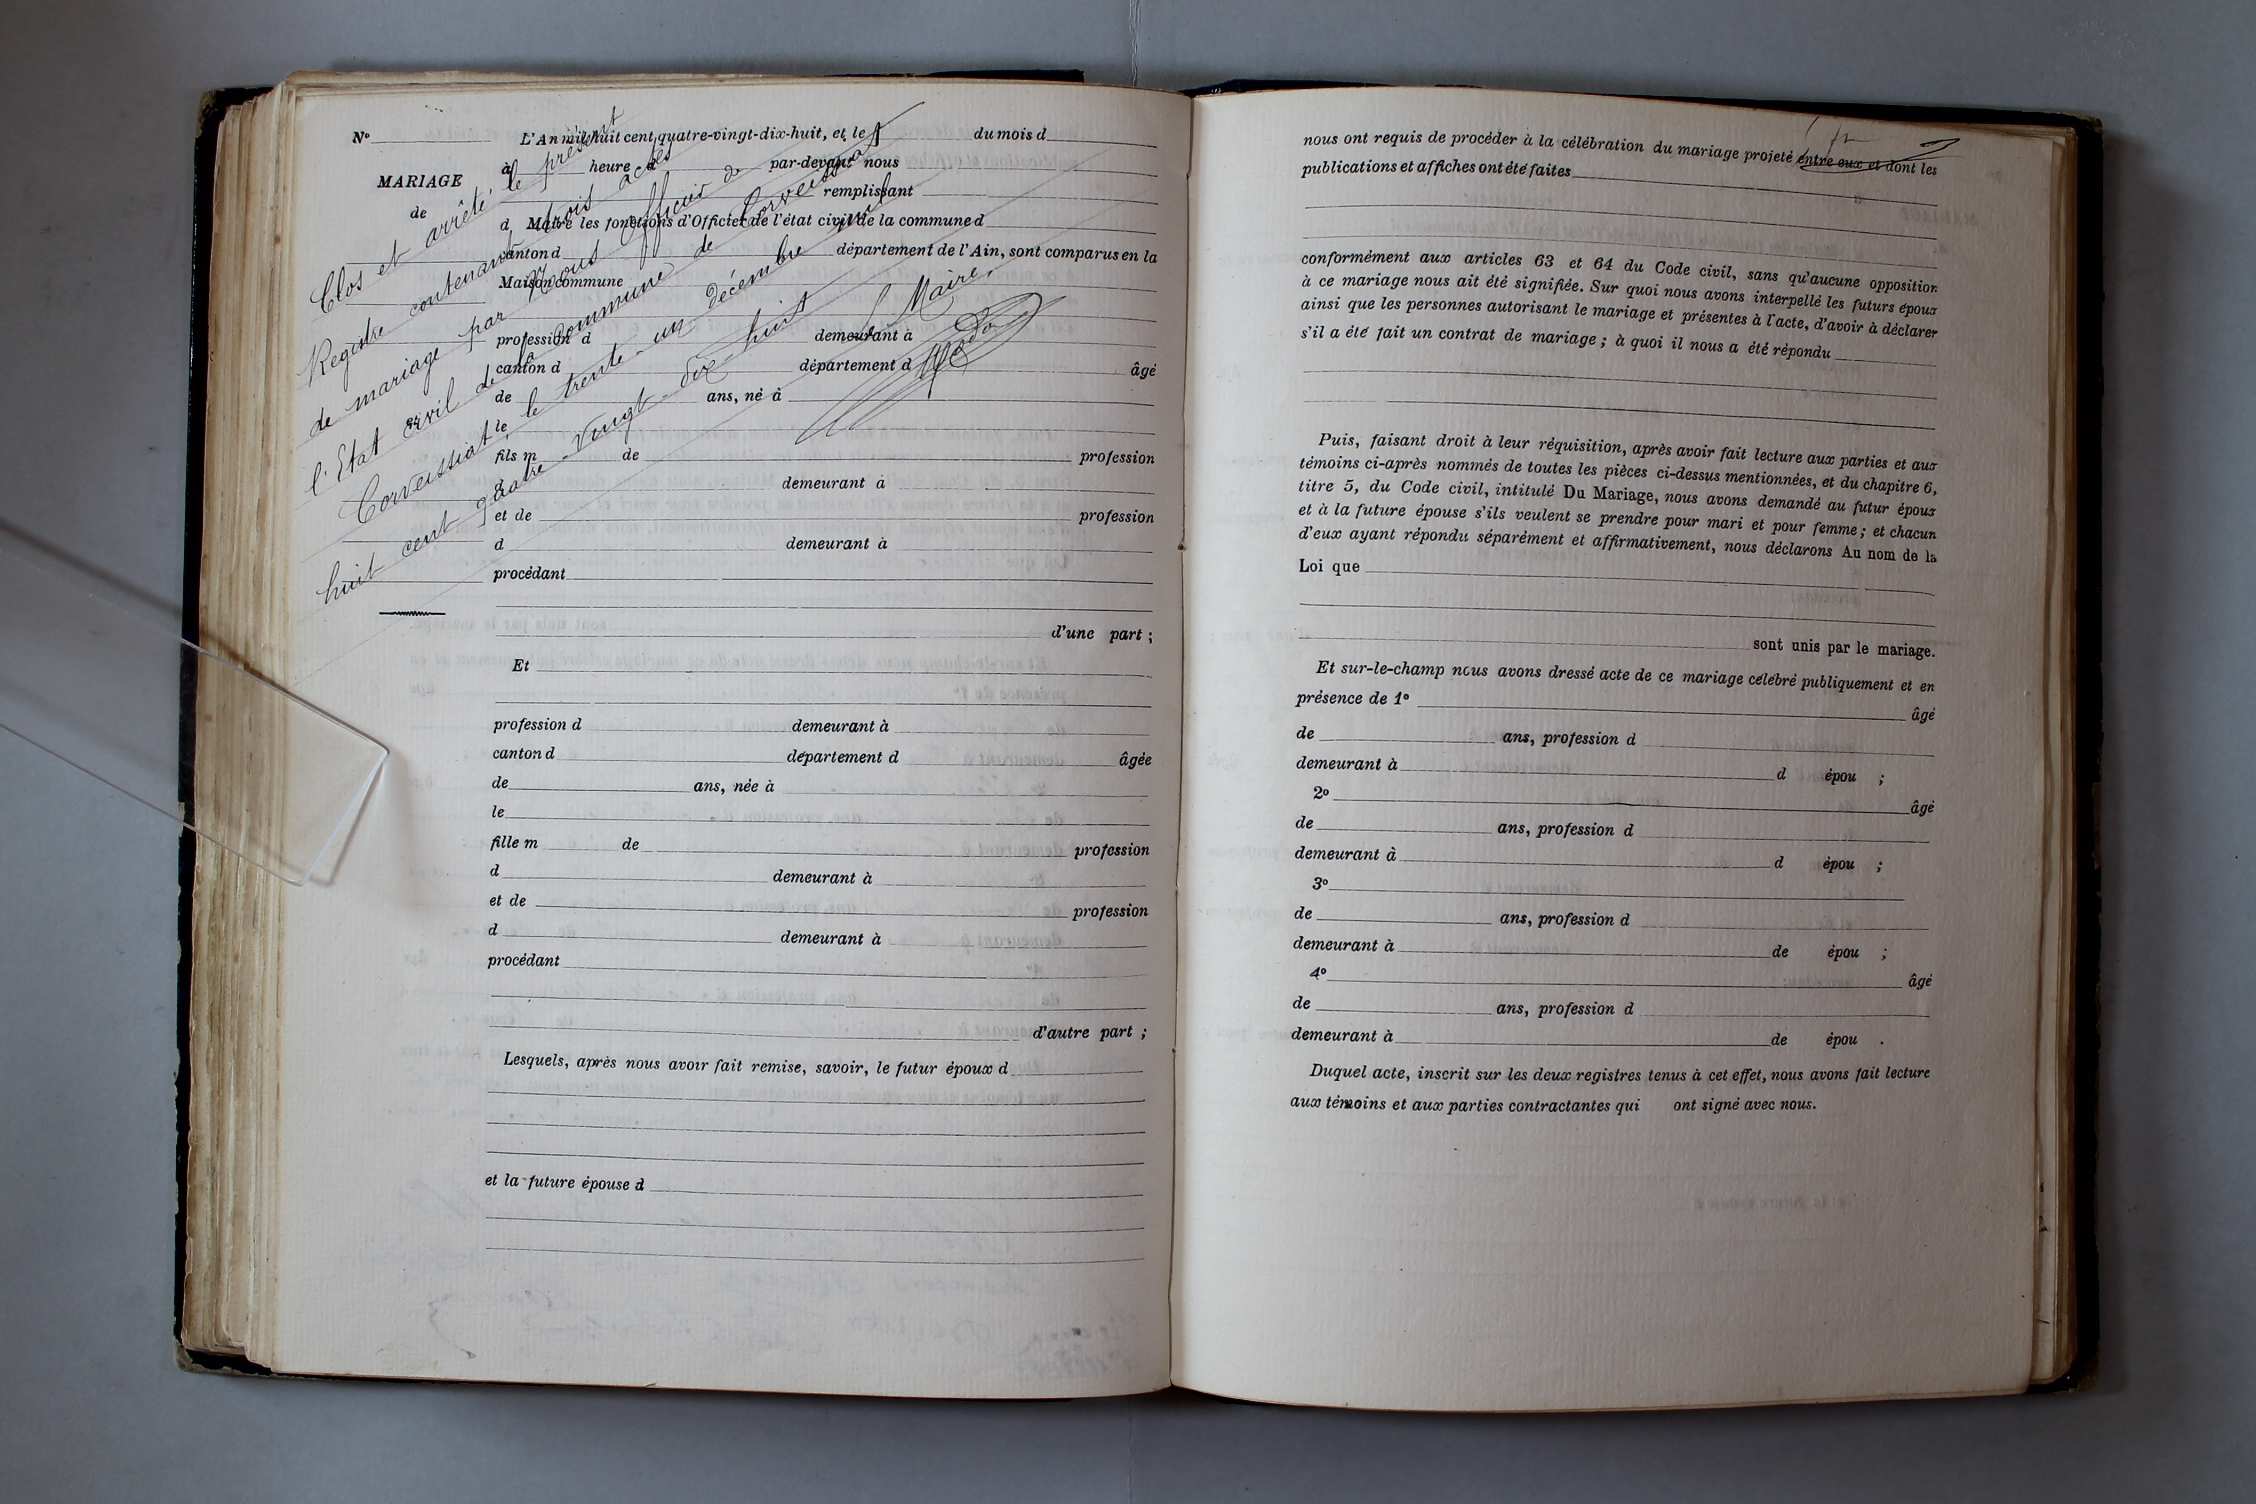 N°
MARIAGE
de
L'An mil huit cent quatre-vingt-dix-huit, et le du mois d
à heure d par-devant nous
remplissant
d Maire les fonctions d'Officier de l'état civil de la commune d
canton d département de l'Ain, sont comparus en la
Maison commune
profession d demeurant à
canton d département d âgé
de ans, né à
le
fils m de profession
d demeurant à
et de profession
d demeurant à
procédant
d'une part ;
Et
profession d demeurant à
canton d département d âgée
de ans, née à
le
fille m de profession
d demeurant à
et de profession
d demeurant à
procédant
d'autre part ;
Lesquels, après nous avoir fait remise, savoir, le futur époux d
et la future épouse d
Clos et arrêté le présent
Registre contenant trois actes
de mariage par Nous officier de
l'Etat civil de la Commune de Corveissiat
Corveissiat, le trente-un décembre mil
huit cent quatre-vingt-dix-huit
Le Maire,
nous ont requis de procéder à la célébration du mariage projeté entre eux et dont les
publications et affiches ont été faites
conformément aux articles 63 et 64 du Code civil, sans qu'aucune opposition
à ce mariage nous ait été signifiée. Sur quoi nous avons interpellé les futurs époux
ainsi que les personnes autorisant le mariage et présentes à l'acte, d'avoir à déclarer
s'il a été fait un contrat de mariage ; à quoi il nous a été répondu
Puis, faisant droit à leur réquisition, après avoir fait lecture aux parties et aux
témoins ci-après nommés de toutes les pièces ci-dessus mentionnées, et du chapitre 6,
titre 5, du Code civil, intitulé Du Mariage, nous avons demandé au futur époux
et à la future épouse s'ils veulent se prendre pour mari et pour femme ; et chacun
d'eux ayant répondu séparément et affirmativement, nous déclarons Au nom de la
Loi que
sont unis par le mariage.
Et sur-le-champ nous avons dressé acte de ce mariage célébré publiquement et en
présence de 1° âgé
de ans, profession d
demeurant à d épou ;
2° âgé
de ans, profession d
demeurant à d épou ;
3°
de ans, profession d
demeurant à de épou ;
4° âgé
de ans, profession d
demeurant à de épou .
Duquel acte, inscrit sur les deux registres tenus à cet effet, nous avons fait lecture
aux témoins et aux parties contractantes qui ont signé avec nous.